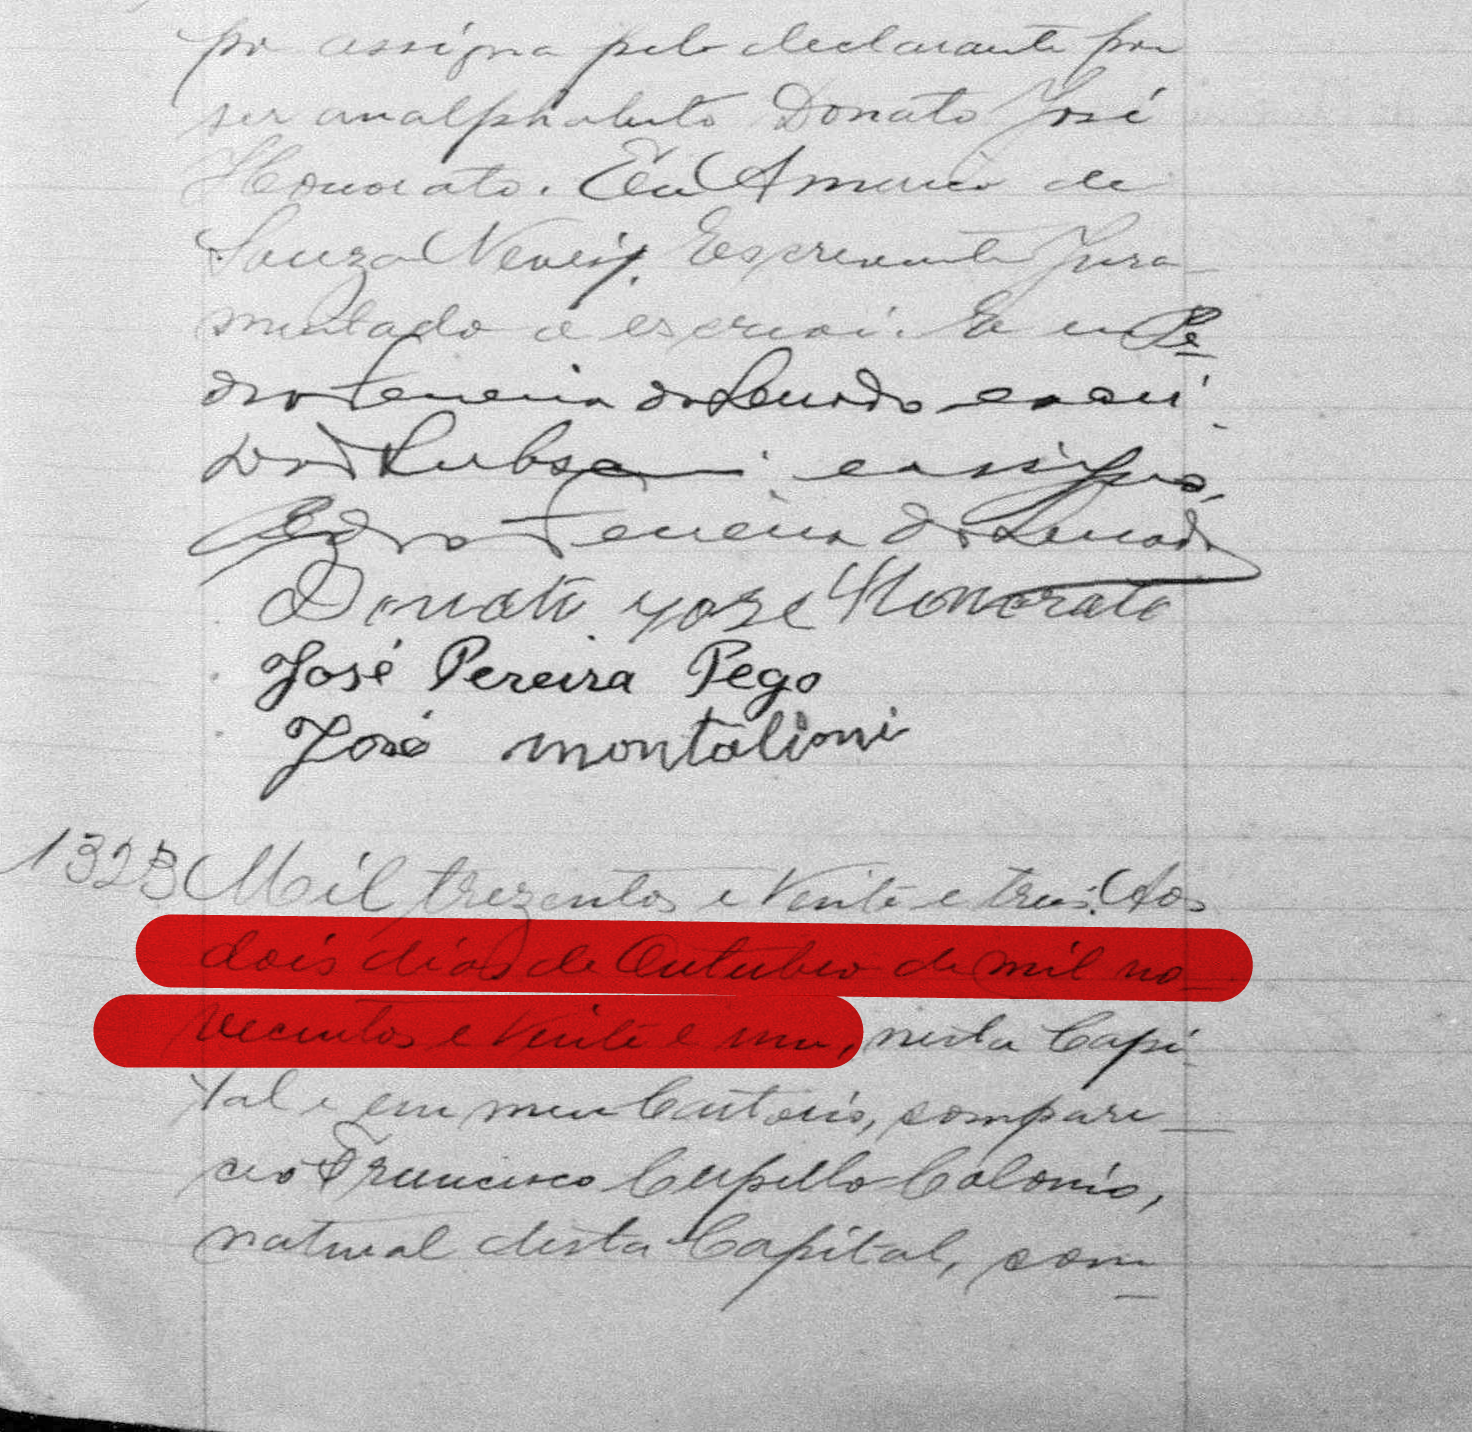 po assigna pelo declarante por
ser analphabeto Donato José
Honorato. Eu Americo de
Souza Neves, Escrevente Jura-
mentado o escrevi. E eu Pe-
dro Ferreira do Serrado escri-
vão o subscrevi e assigno,
Pedro Ferreira do Serrado
Donato yoze Honorato
José Pereira Pego
José montalioni
1323 Mil trezentos e vinte e tres. Aos
dois dias de Outubro de mil no-
vecentos e vinte e um, nesta Capi-
tal e em meu Cartorio, compare-
ceo Francisco Cupello Colonio,
natural desta Capital, com